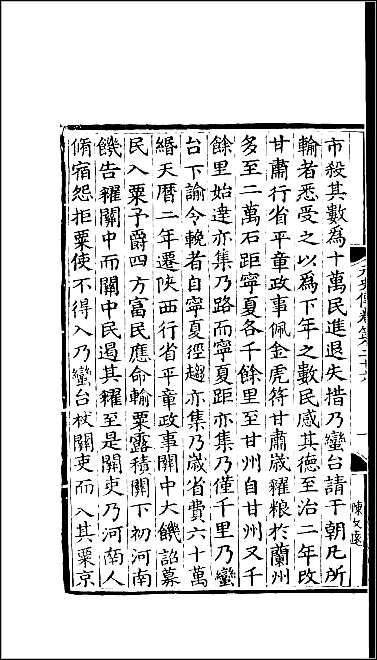 市殺其數為十萬民進退失措乃蠻台請于朝凡所
輸者悉受之以為下年之數民感其德至治二年改
甘肅行省平章政事佩金虎符甘肅歲糴粮於蘭州
多至二萬石距寧夏各千餘里至甘州自甘州又千
餘里始達亦集乃路而寧夏距亦集乃僅千里乃蠻
台下諭令輓者自寧夏徑趨亦集乃歲省費六十萬
緡天曆二年遷陝西行省平章政事關中大饑詔募
民入粟予爵四方富民應命輸粟露積關下初河南
饑告糴關中而關中民遏其糴至是關吏乃河南人
脩宿怨拒粟使不得入乃蠻台杖關吏而入其粟京